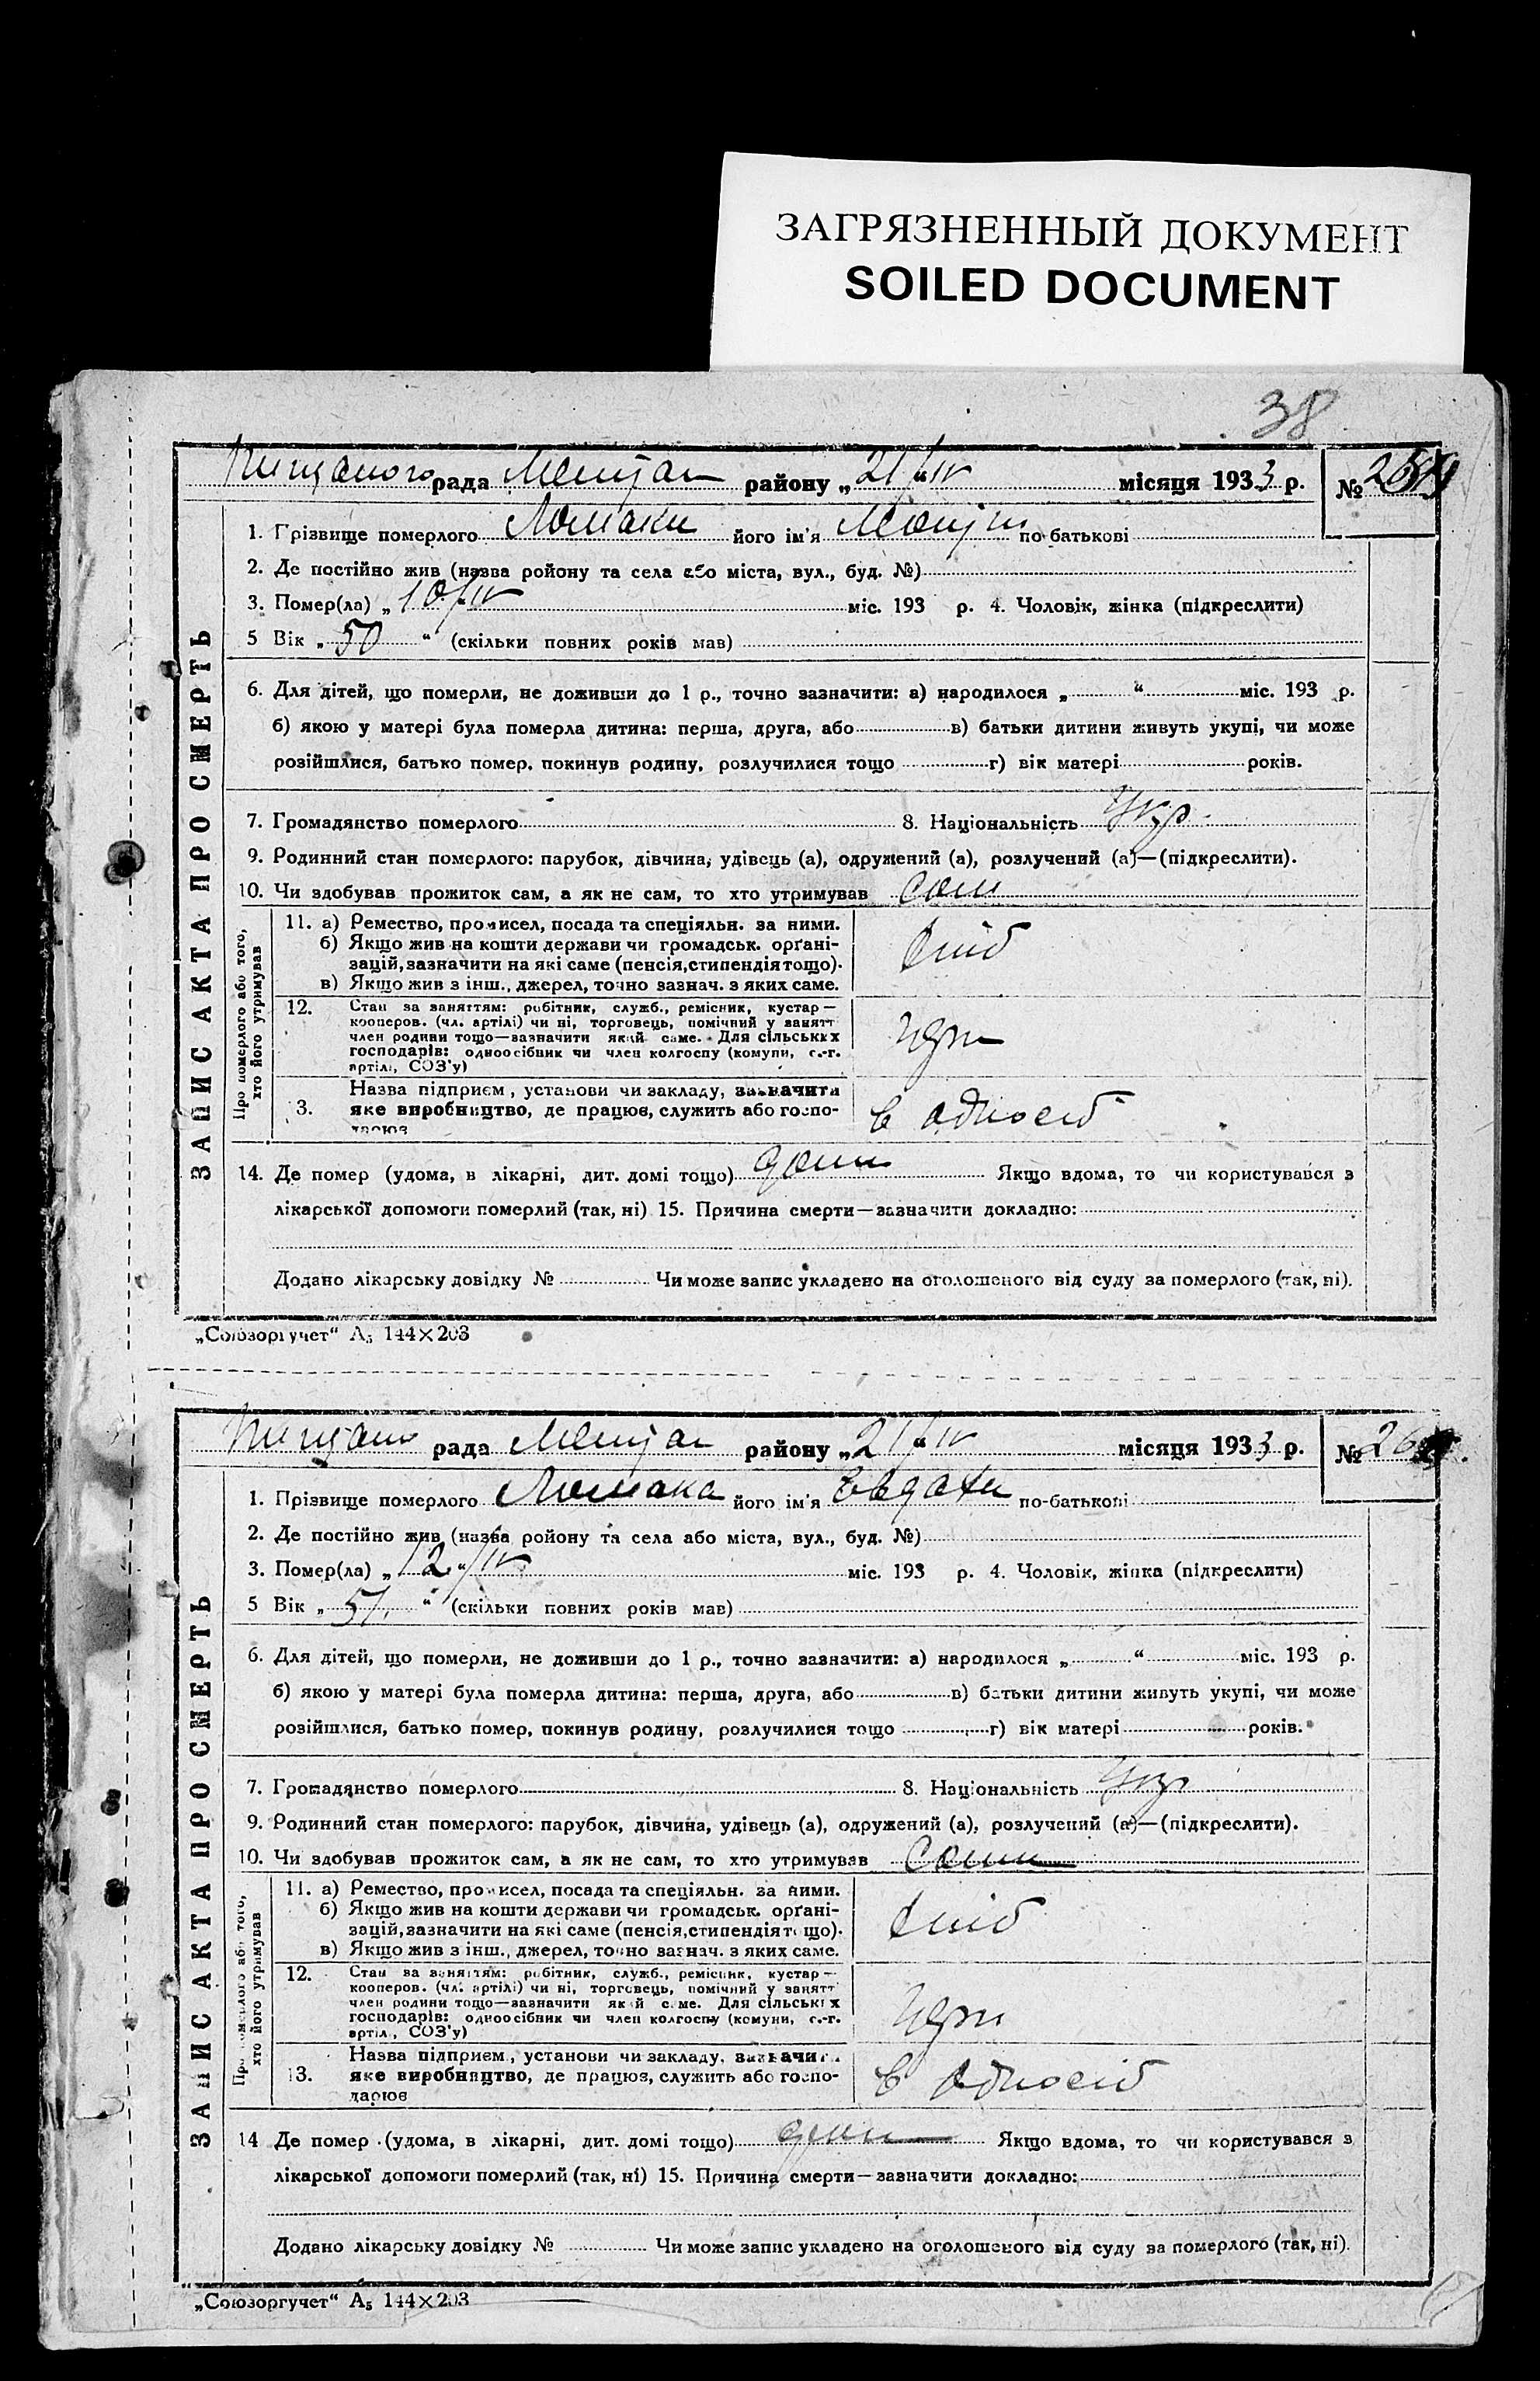 ЗАГРЯЗНЕННЫЙ ДОКУМЕНТ
SOILED DOCUMENT
38
рада район​у „21/IV місяця 1933 р. №
1. Прізвище померлого Ломаки його ім'я по-батькові
2. Де постійно жив (назва ройону та села або міста, вул., буд. №)
3. Помер(ла) „10/IV міс. 193 р. 4. Чоловік, жінка (підкреслити)
5 Вік „ 50 “ (скільки повних років мав)
6. Для дітей, що померли, не доживши до 1 р., точно зазначити: а) народилося „ “ міс. 193 р.
б) якою у матері була померла дитина: перша, друга, або в) батьки дитини живуть укупі, чи може
розійшлися, батько помер, покинув родину, розлучилися тощо г) вік матері років.
7. Громадянство померлого 8. Національність Укр.
9. Родинний стан померлого: парубок, дівчина, удівець (а), одружений (а), розлучений (а)—(підкреслити).
10. Чи здобував прожиток сам, а як не сам, то хто утримував сам
ЗАПИС АКТА ПРО СМЕРТЬ
Про померлого або того, хто його утримував
11. а) Ремество, промисел, посада та спеціяльн. за ними.
б) Якщо жив на кошти держави чи громадськ. орґані-
зацій, зазначити на які саме (пенсія, стипендія тощо).
в) Якщо жив з інш., джерел, точно зазнач. з яких саме.
12. Стан за заняттям: робітник, служб., ремісник, кустар—
кооперов. (чл. артілі) чи ні, торговець, помічний у занятт
член родини тощо—зазначити який саме. Для сільських
господарів: одноосібник чи член колгоспу (комуни, с.-г.
артілі, СОЗ'у)
Назва підприєм, установи чи закладу, зазначити
3. яке виробництво, де працюв, служить або госпо-
дарюв
в одноосіб
14. Де помер (удома, в лікарні, дит. домі тощо) дома Якщо вдома, то чи користувався з
лікарської допомоги померлий (так, ні) 15. Причина смерти—зазначити докладно:
Додано лікарську довідку № Чи може запис укладено на оголошеного від суду за померлого (так, ні).
„Союзоргучет“ А₅ 144×203
рада району „21/IV місяця 1933 р. №
1. Прізвище померлого Ломака його ім'я по-батькові
2. Де постійно жив (назва ройону та села або міста, вул., буд. №)
3. Помер(ла) „12“/IV міс. 193 р. 4. Чоловік, жінка (підкреслити)
5 Вік „ 51. “ (скільки повних років мав)
6. Для дітей, що померли, не доживши до 1 р., точно зазначити: а) народилося „ “ міс. 193 р.
б) якою у матері була померла дитина: перша, друга, або в) батьки дитини живуть укупі, чи може
розійшлися, батько помер, покинув родину, розлучилися тощо г) вік матері років.
7. Громадянство померлого 8. Національність Укр
9. Родинний стан померлого: парубок, дівчина, удівець (а), одружений (а), розлучений (а)—(підкреслити).
10. Чи здобував прожиток сам, а як не сам, то хто утримував
ЗАПИС АКТА ПРО СМЕРТЬ
Про померлого або того, хто його утримував
11. а) Ремество, промисел, посада та спеціяльн. за ними.
б) Якщо жив на кошти держави чи громадськ. орґані-
зацій, зазначити на які саме (пенсія, стипендія тощо).
в) Якщо жив з інш., джерел, точно зазнач. з яких саме.
12. Стан за заняттям: робітник, служб., ремісник, кустар—
кооперов. (чл. артілі) чи ні, торговець, помічний у занятт
член родини тощо—зазначити який саме. Для сільських
господарів: одноосібник чи член колгоспу (комуни, с.-г.
артіл., СОЗ'у)
Назва підприєм., установи чи закладу, зазначит
13. яке виробництво, де працюв, служить або госпо-
дарюв
в одноосіб
14 Де помер (удома, в лікарні, дит. домі тощо) Якщо вдома, то чи користувався з
лікарської допомоги померлий (так, ні) 15. Причина смерти—зазначити докладно:
Додано лікарську довідку № Чи може запис укладено на оголошеного від суду за померлого (так, ні).
„Союзоргучет“ А₅ 144×203